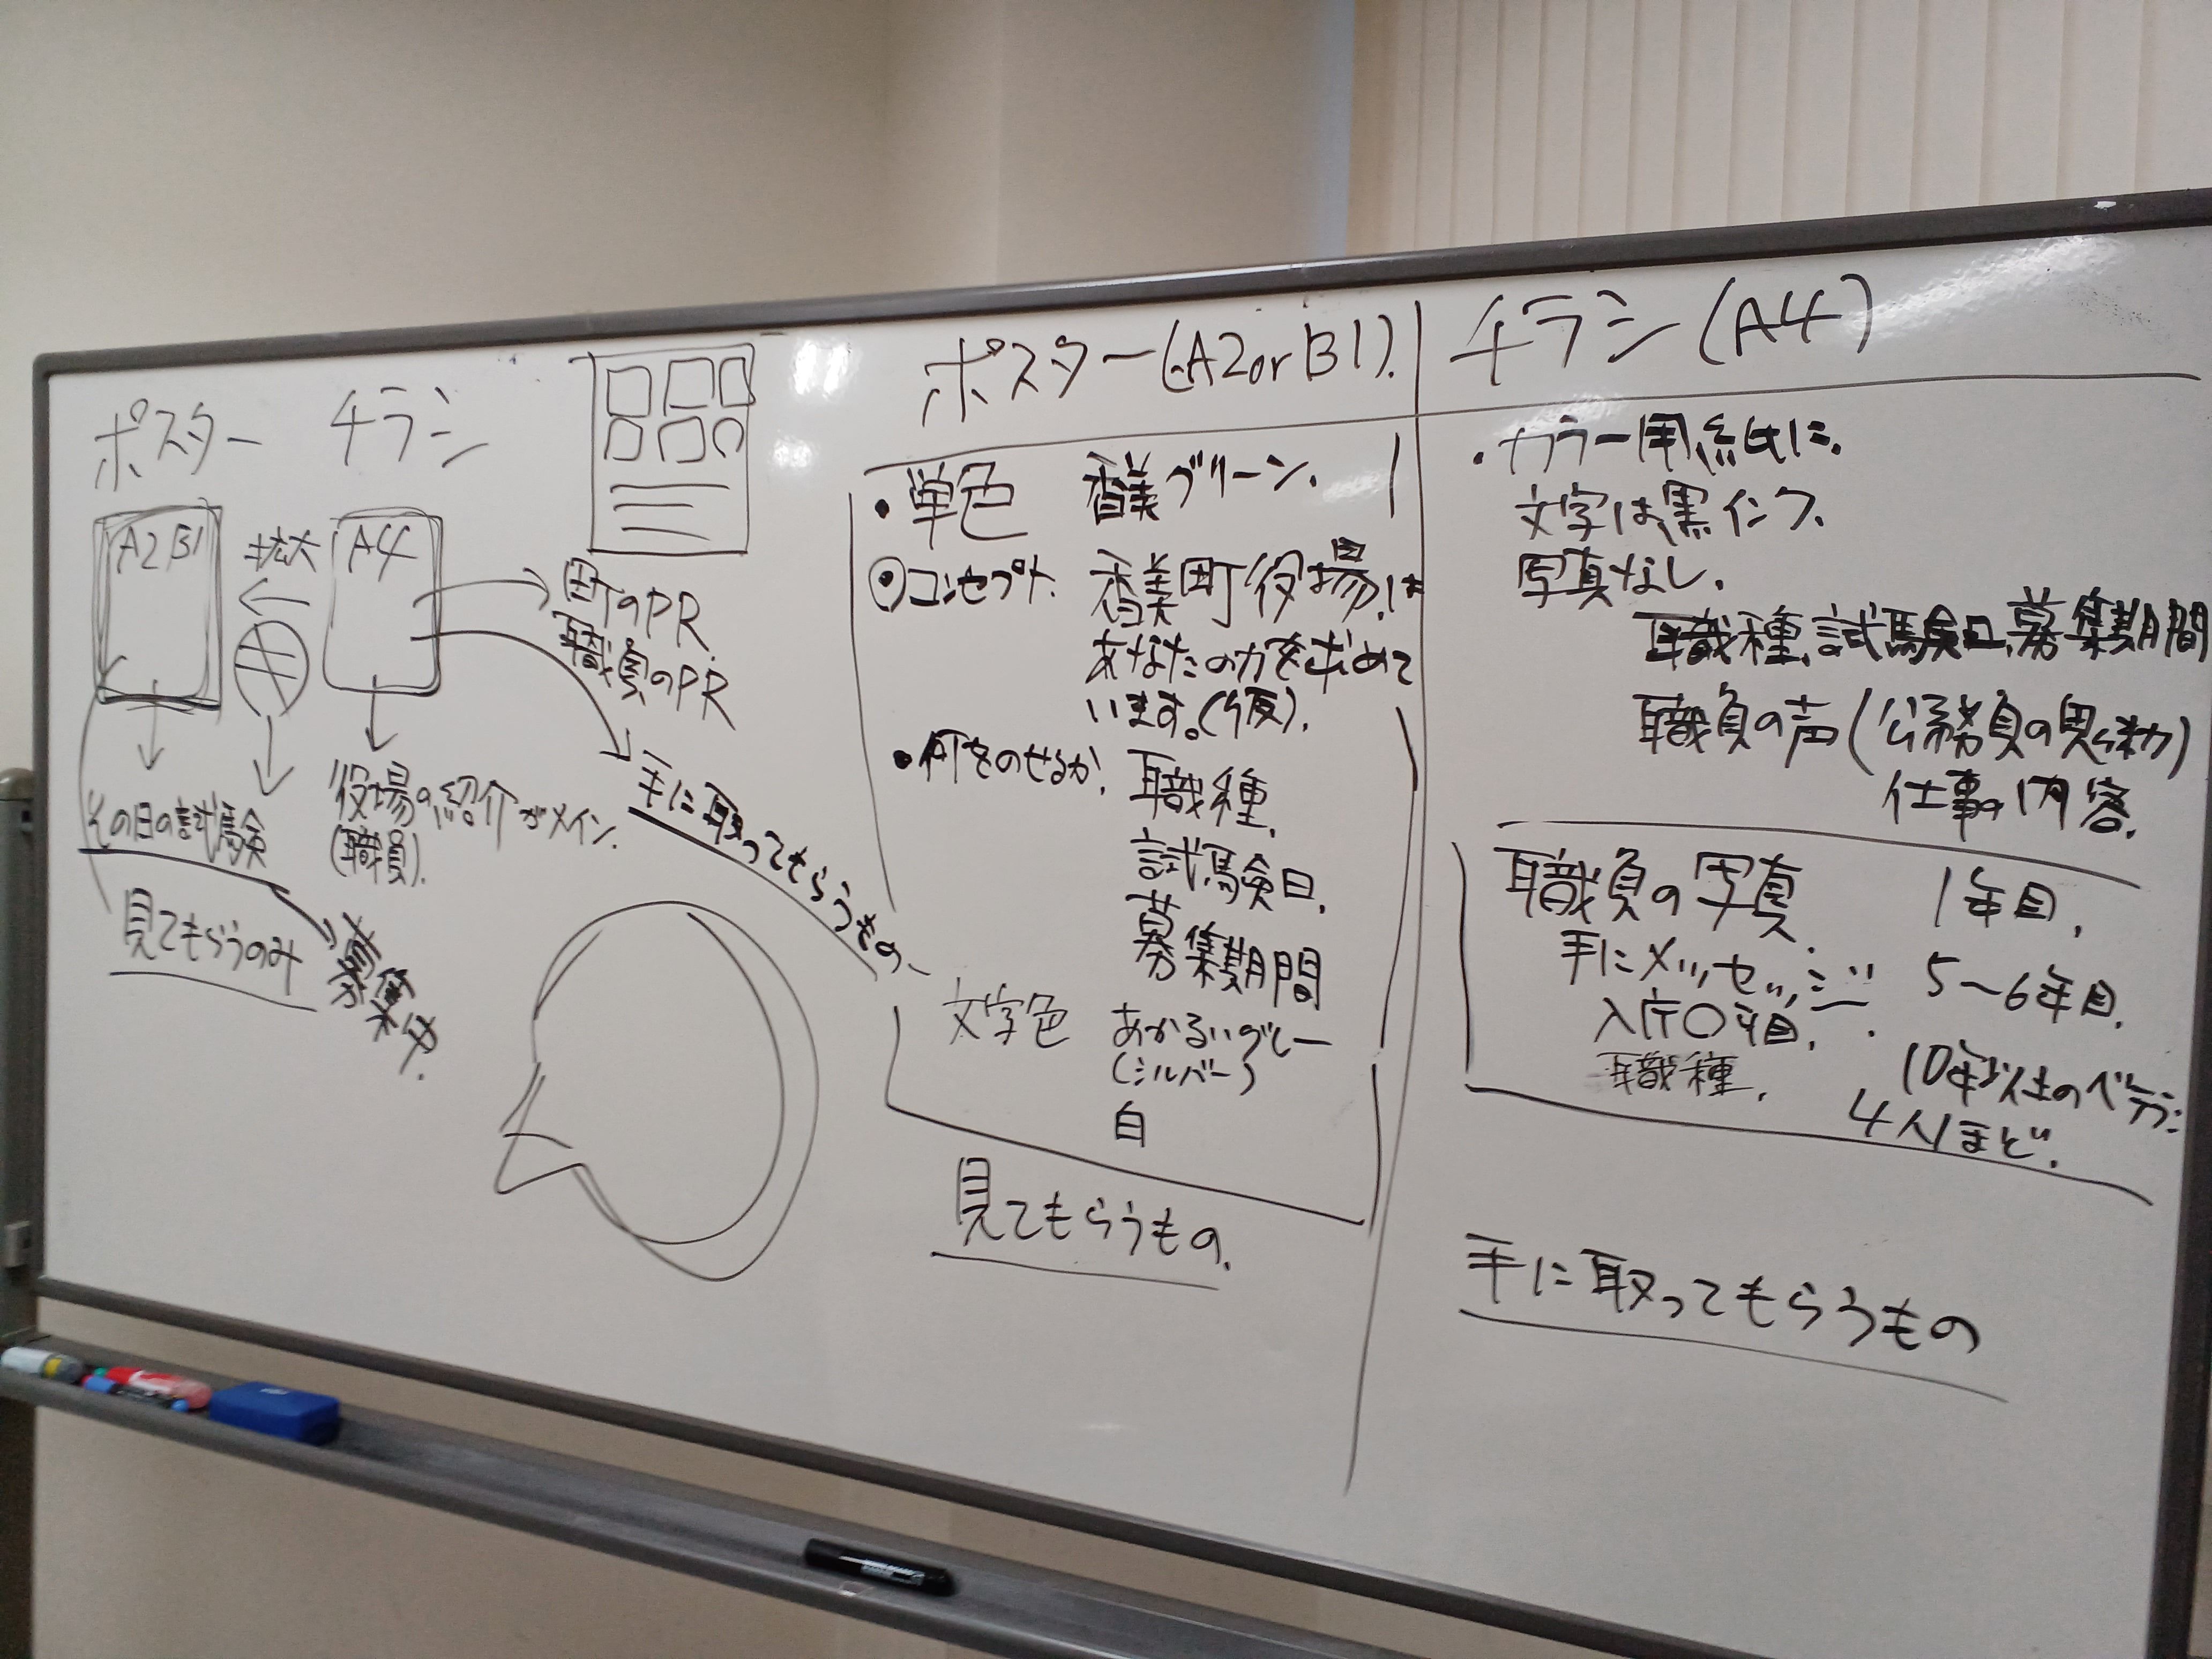 ポスター
チラシ
A2 B1
拡大
A4
町のPR
職員のPR
その日の試験
役場の紹介がメイン.
(職員).
手に取ってもらうもの
見てもらうのみ
募集中.
ポスター(A2orB1).
・単色 香美グリーン.
コンセプト. 香美町役場は
あなたの力を求めて
います。(仮).
・何をのせるか. 職種.
試験日.
募集期間
文字色 あかるいグレー
(シルバー)
白
見てもらうもの.
チラシ(A4)
・カラー用紙に.
文字は黒インク.
写真なし.
職種、試験日、募集期間
職員の声(公務員の魅力)
仕事の内容.
職員の写真. 1年目.
手にメッセージ. 5〜6年目.
入庁〇年目.
職種. 10年以上のベテラン
4人ほど.
手に取ってもらうもの